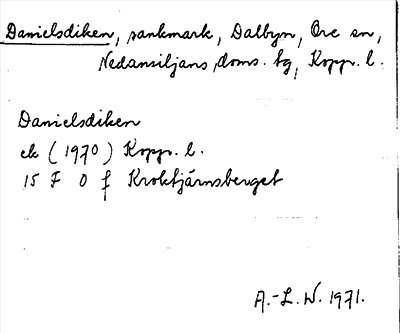 Danielsdiken, sankmark, Dalbyn, Ore sn,
Nedansiljans doms. tg, Kopp. l.
Danielsdiken
ek (1970) Kopp. l.
15 F 0 f Kroktjärnsberget
A.-L. W. 1971.